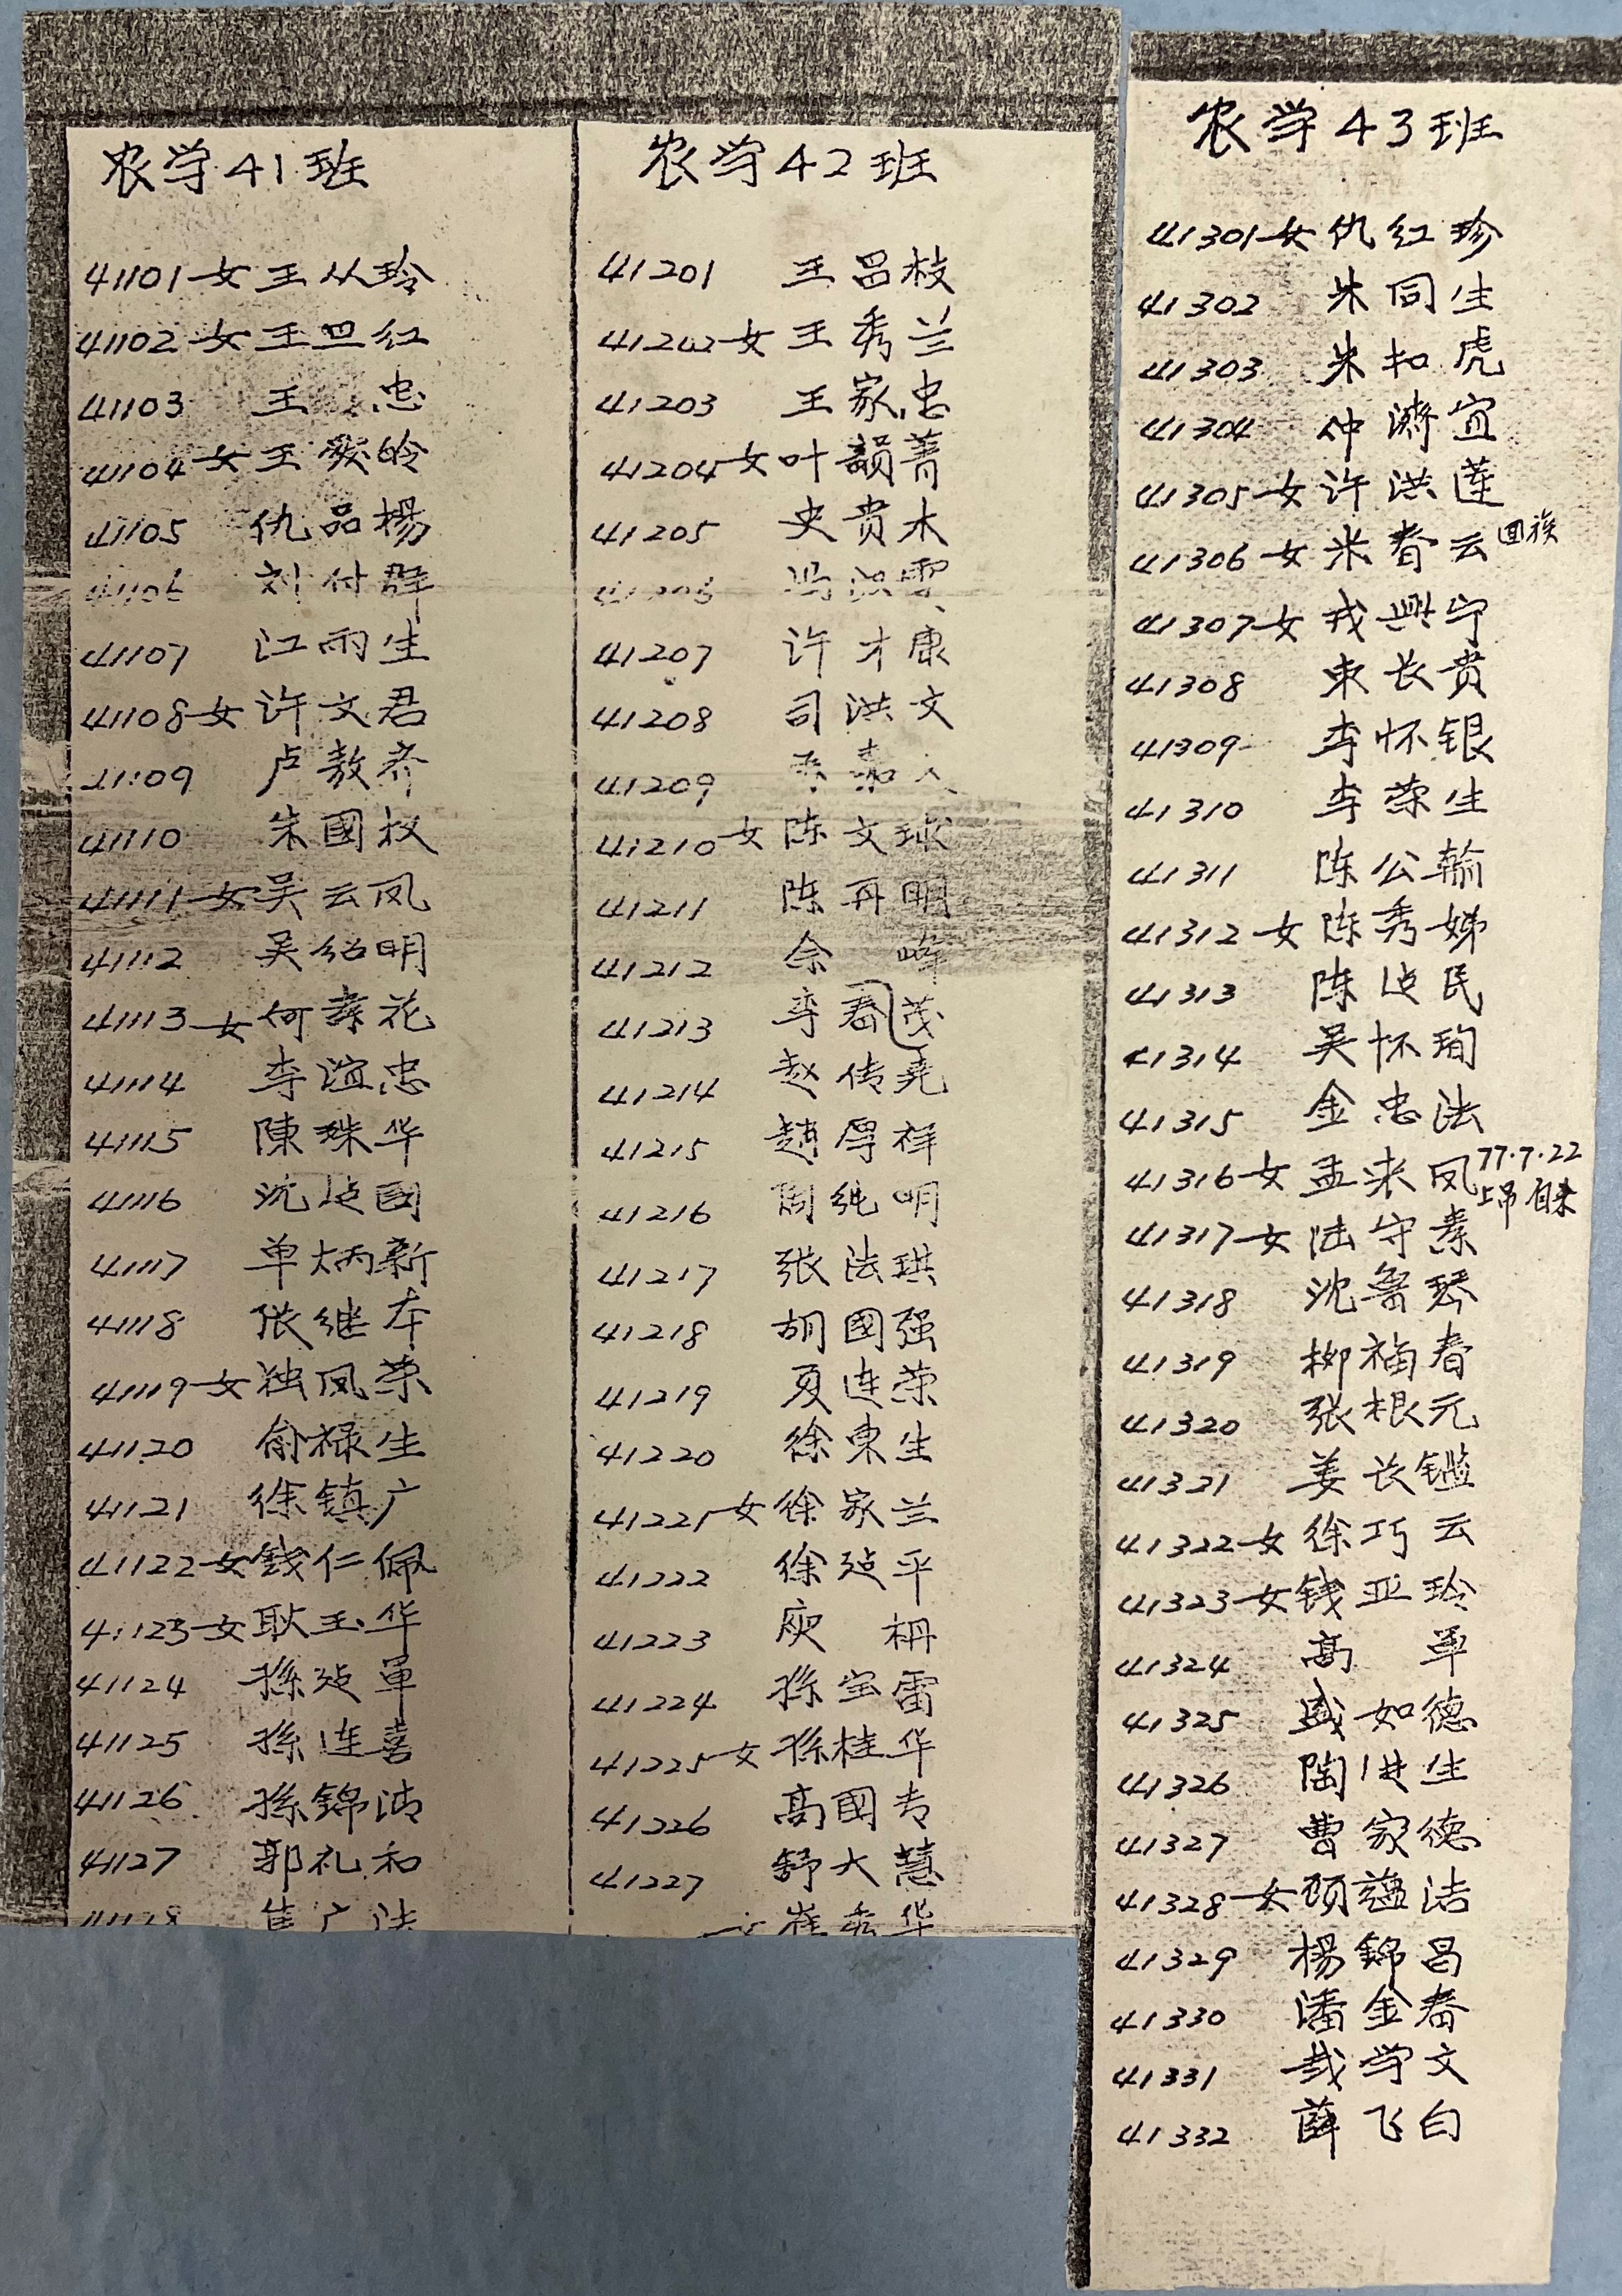 农学41班
41101 女 王从玲
41102 女 王卫红
41103 王忠
41104 女 王爱玲
41105 仇品楊
41106 刘付群
41107 江雨生
41108 女 许文君
41109 卢敖齐
41110 朱國权
41111 女 吴云凤
41112 吴绍明
41113 女 何彦花
41114 李谊忠
41115 陳珠华
41116 沈建國
41117 单炳新
41118 张继本
41119 女 独凤荣
41120 俞禄生
41121 徐镇广
41122 女 钱仁佩
41123 女 耿玉华
41124 孫建军
41125 孫连喜
41126 孫錦清
41127 郭礼和
41128 崔广法
农学42班
41201 王昌枝
41202 女 王秀兰
41203 王家忠
41204 女 叶韻菁
41205 史贵木
冯洪雲
41207 许才康
41208 司洪文
41209
41210 女 陈文球
41211 陈再明
41212 余峰
41213 李春茂
41214 赵传尧
41215 趙厚祥
41216 周纯明
41217 张法珙
41218 胡國强
41219 夏连荣
41220 徐東生
41221 女 徐家兰
41222 徐建平
41223 庾枬
41224 孫宝雷
41225 女 孫桂华
41226 高國专
41227 舒大慧
崔秀华
农学43班
41301 女 仇红珍
41302 朱同生
41303 朱扣虎
41304 仲濟宜
41305 女 许洪莲
41306 女 米春云 回族
41307 女 戎興宁
41308 束长贵
41309 李怀银
41310 李荣生
41311 陈公輸
41312 女 陈秀娣
41313 陈建民
41314 吴怀珣
41315 金忠法
41316 女 孟来凤 77.7.22
41317 女 陆守素
41318 沈鲁琴
41319 柳福春
41320 张根元
41321 姜长鑑
41322 女 徐巧云
41323 女 钱亚玲
41324 高军
41325 盛如德
41326 陶进生
41327 曹家德
41328 女 顾蕴洁
41329 楊錦昌
41330 潘金春
41331 戢学文
41332 薛飞白